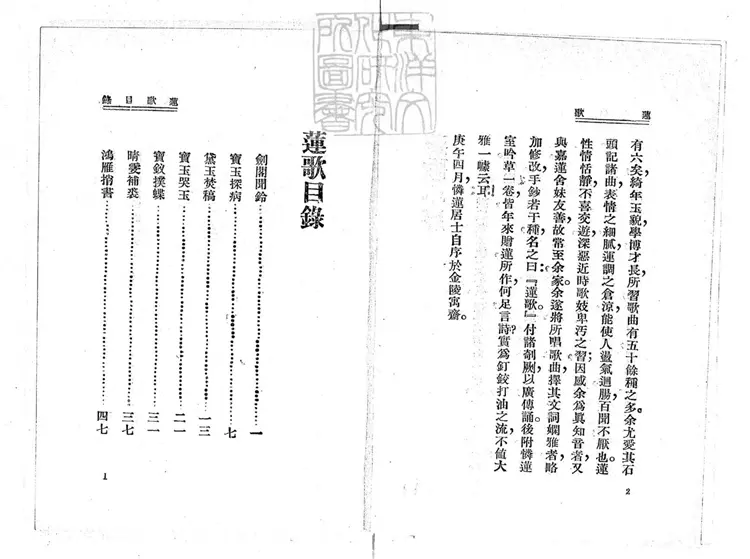 蓮歌
有六矣綺年玉貌學博才長所習歌曲有五十餘種之多。余尤愛其石
頭記諸曲表情之細膩運調之倉涼能使人盪氣迴腸百聞不厭也。蓮
性情恬靜不喜交遊深惡近時歌妓卑汚之習；因感余爲眞知音者又
與嘉蓮舍妹友善故常至余家余遂將所唱歌曲擇其文詞嫻雅者略
加修改手鈔若干種名之曰：『蓮歌。』付諸剞劂以廣傳誦。後附憐蓮
室吟草一卷皆年來贈蓮所作何足言詩？實爲釘鉸打油之流不值大
雅一噱云耳
庚午四月憐蓮居士自序於金陵寓齋。
2
蓮歌目錄
蓮歌目錄
劍閣聞鈴……一
寶玉探病……七
黛玉焚稿……一三
寶玉哭玉……二一
寶釵撲蝶……三一
晴雯補裘……三七
鴻雁捎書……四七
1
東洋文化研究所圖書